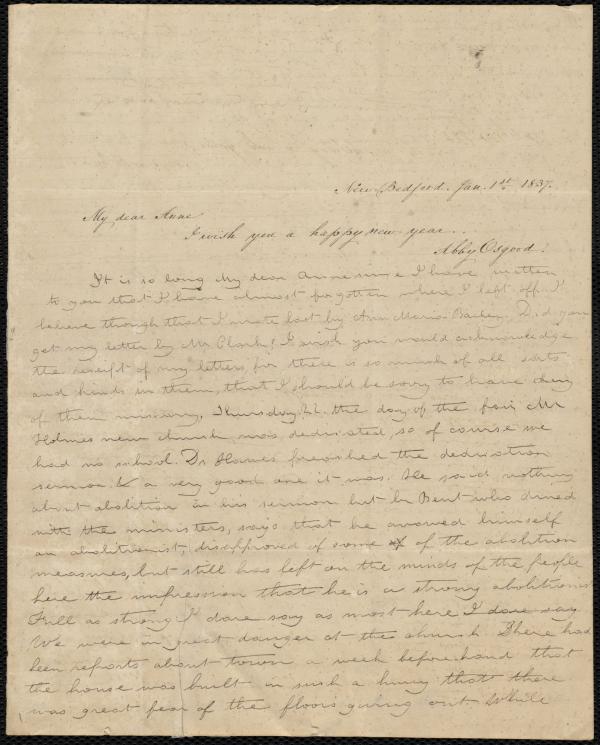 New Bedford. Jan. 1st 1837.
My dear Anne
I wish you a happy new year...
Abby Osgood.
It is so long My dear Anne since I have written
to you that I have almost forgotten where I left off. I
believe though that I wrote last by Ann Maria Bailey. Did you
get my letter by Mr Clark? I wish you would acknowledge
the receipt of my letters, for there is so much of all sorts
and kinds in them, that I should be sorry to have any
of them missing. Thursday the day of the fair Mr
Holmes new church was dedicated, so of course we
had no school. Dr Hawes preached the dedication
sermon & a very good one it was. He said nothing
about abolition in his sermon but Dr Bent who dined
with the ministers, says that he avowed himself
an abolitionist, disapproved of some of the abolition
measures, but still has left on the minds of the people
here the impression that he is a strong abolitionist
Full as strong I dare say as most here I dare say
We were in great danger at the church. There had
been reports about town a week beforehand that
the house was built in such a hurry that there
was great fear of the floors giving out While